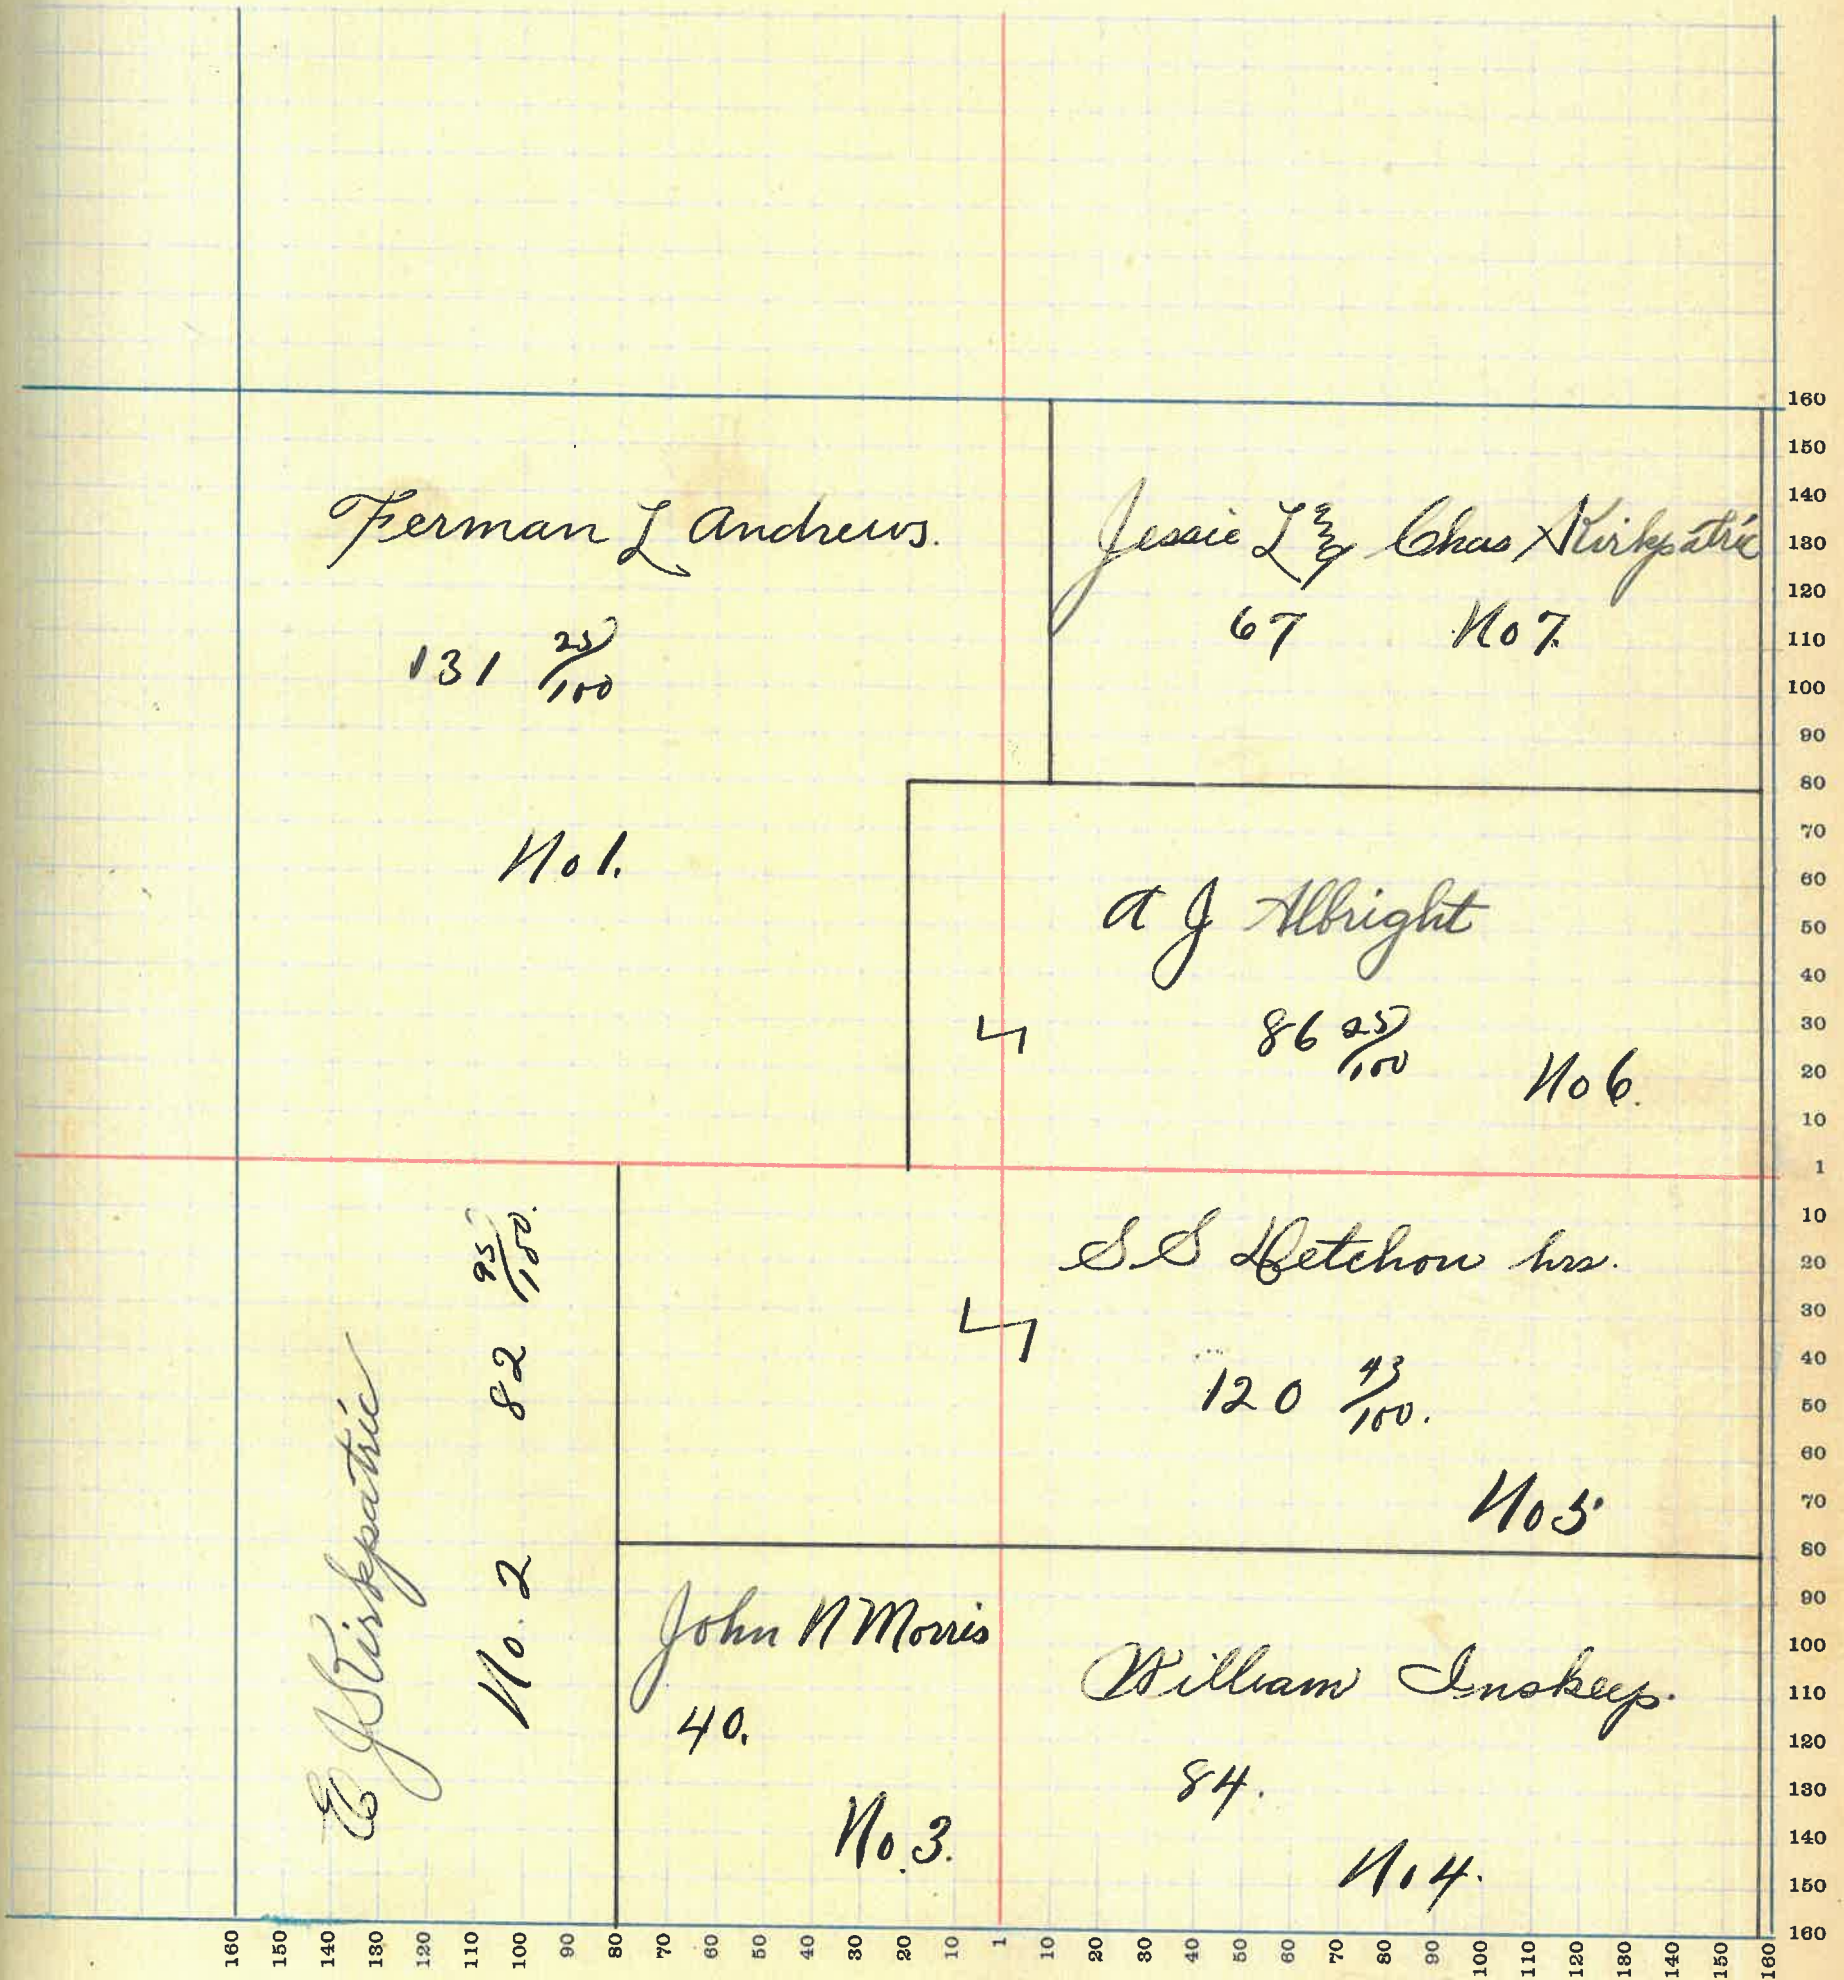 Ferman L Andrews.
131 25/100
No 1.
Jessie L & Chas Kirkpatric
67 No 7.
A J Albright
86 25/100
No 6.
S S Detchon hrs.
120 43/100.
No 5
E J Kirkpatric
No. 2 82 95/100.
John N Morris
40.
No. 3.
William Inskeep.
84.
No 4.
160
150
140
130
120
110
100
90
80
70
60
50
40
30
20
10
1
10
20
30
40
50
60
70
80
90
100
110
120
130
140
150
160
160 150 140 130 120 110 100 90 80 70 60 50 40 30 20 10 1 10 20 30 40 50 60 70 80 90 100 110 120 130 140 150 160